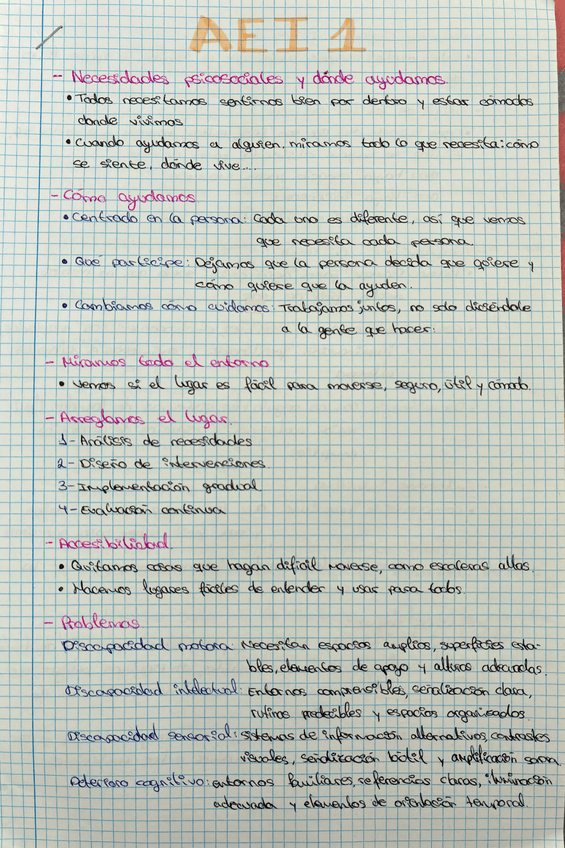 AEI 1
- Necesidades psicosociales y dónde ayudamos
• Todos necesitamos sentirnos bien por dentro y estar cómodos
donde vivimos
• Cuando ayudamos a alguien, miramos todo lo que necesita: cómo
se siente, dónde vive....
- Cómo ayudamos
• Centrado en la persona: Cada uno es diferente, así que vemos
que necesita cada persona.
• Que participe: Dejamos que la persona decida que quiere y
cómo quiere que la ayuden.
• Cambiamos cómo cuidamos: Trabajamos juntos, no solo diciéndole
a la gente que hacer.
- Miramos todo el entorno
• Vemos si el lugar es fácil para moverse, seguro, útil y cómodo.
- Arreglamos el lugar.
1- Análisis de necesidades
2- Diseño de intervenciones
3- Implementación gradual
4- Evaluación continua
- Accesibilidad.
• Quitamos cosas que hagan dificil moverse, como escaleras altas.
• Hacemos lugares fáciles de entender y usar para todos.
- Problemas
Discapacidad motora: Necesitan espacios amplios, superficies esta-
bles, elementos de apoyo y alturas adecuadas.
Discapacidad intelectual: Entornos comprensibles, señalización clara,
rutinas predecibles y espacios organizados
Discapacidad sensorial: sistemas de información alternativos, contrastes
visuales, señalización táctil y amplificación sonora.
Deterioro cognitivo: entornos familiares, referencias claras, iluminación
adecuada y elementos de orientación temporal.